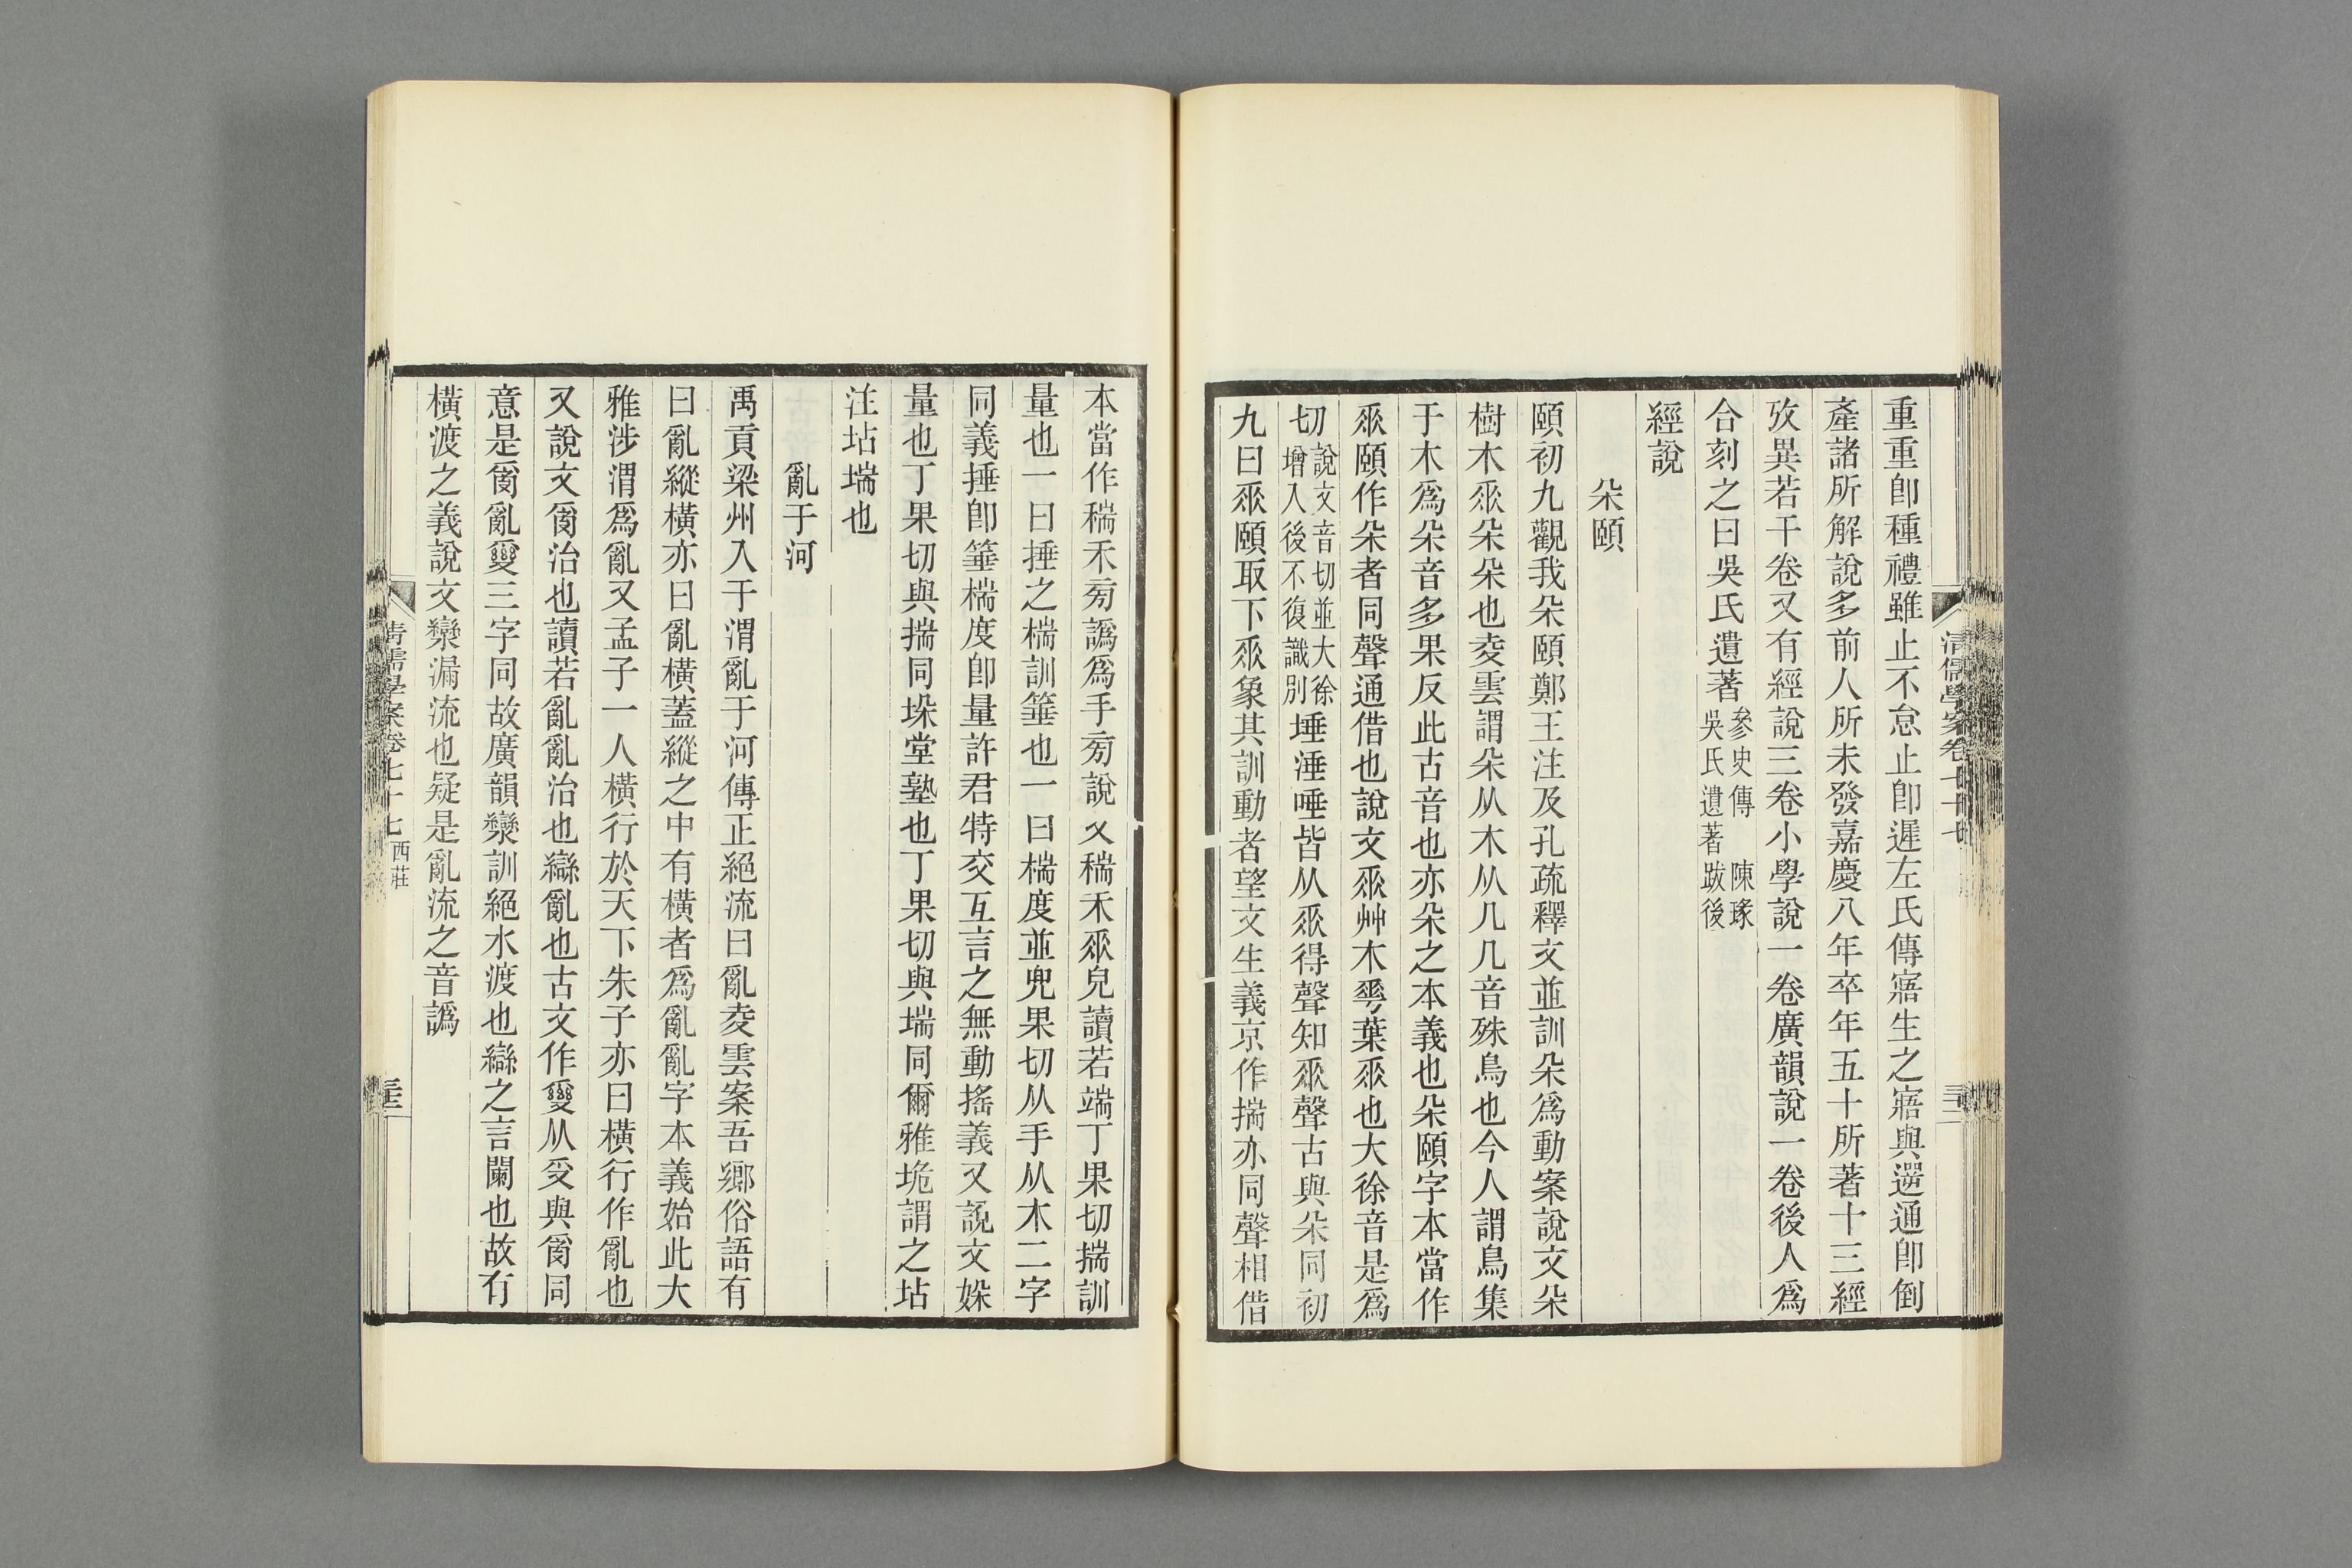 清儒學案卷七十七
重重卽種禮雖止不怠止卽遲左氏傳寤生之寤與遻通卽倒
產諸所解說多前人所未發嘉慶八年卒年五十所著十三經
攷異若干卷又有經說三卷小學說一卷廣韻說一卷後人爲
合刻之曰吳氏遺著參史傳 陳瑑吳氏遺著跋後
經說
朵頤
頤初九觀我朵頤鄭王注及孔疏釋文並訓朵爲動案說文朵
樹木𠂹朵朵也夌雲謂朵从木从几几音殊鳥也今人謂鳥集
于木爲朵音多果反此古音也亦朵之本義也朵頤字本當作
𠂹頤作朵者同聲通借也說文𠂹艸木𠌶葉𠂹也大徐音是爲
切說文音切並大徐增入後不復識別埵涶唾皆从𠂹得聲知𠂹聲古與朵同初
九曰𠂹頤取下𠂹象其訓動者望文生義京作揣亦同聲相借
本當作稯禾旁譌爲手旁說文稯禾𠂹皃讀若端丁果切揣訓
量也一曰捶之椯訓箠也一曰椯度並兜果切从手从木二字
同義捶卽箠椯度卽量許君特交互言之無動搖義又說文媣
量也丁果切與揣同垛堂塾也丁果切與㙐同爾雅垝謂之坫
注坫㙐也
亂于河
禹貢梁州入于渭亂于河傳正絕流曰亂夌雲案吾鄉俗語有
曰亂縱橫亦曰亂橫蓋縱之中有橫者爲亂亂字本義始此大
雅涉渭爲亂又孟子一人橫行於天下朱子亦曰橫行作亂也
又說文𤔔治也讀若亂亂治也䜌亂也古文作𤕍从𠬪與𤔔同
意是𤔔亂𤕍三字同故廣韻灓訓絕水渡也䜌之言闌也故有
橫渡之義說文灓漏流也疑是亂流之音譌
清儒學案卷七十七 西莊